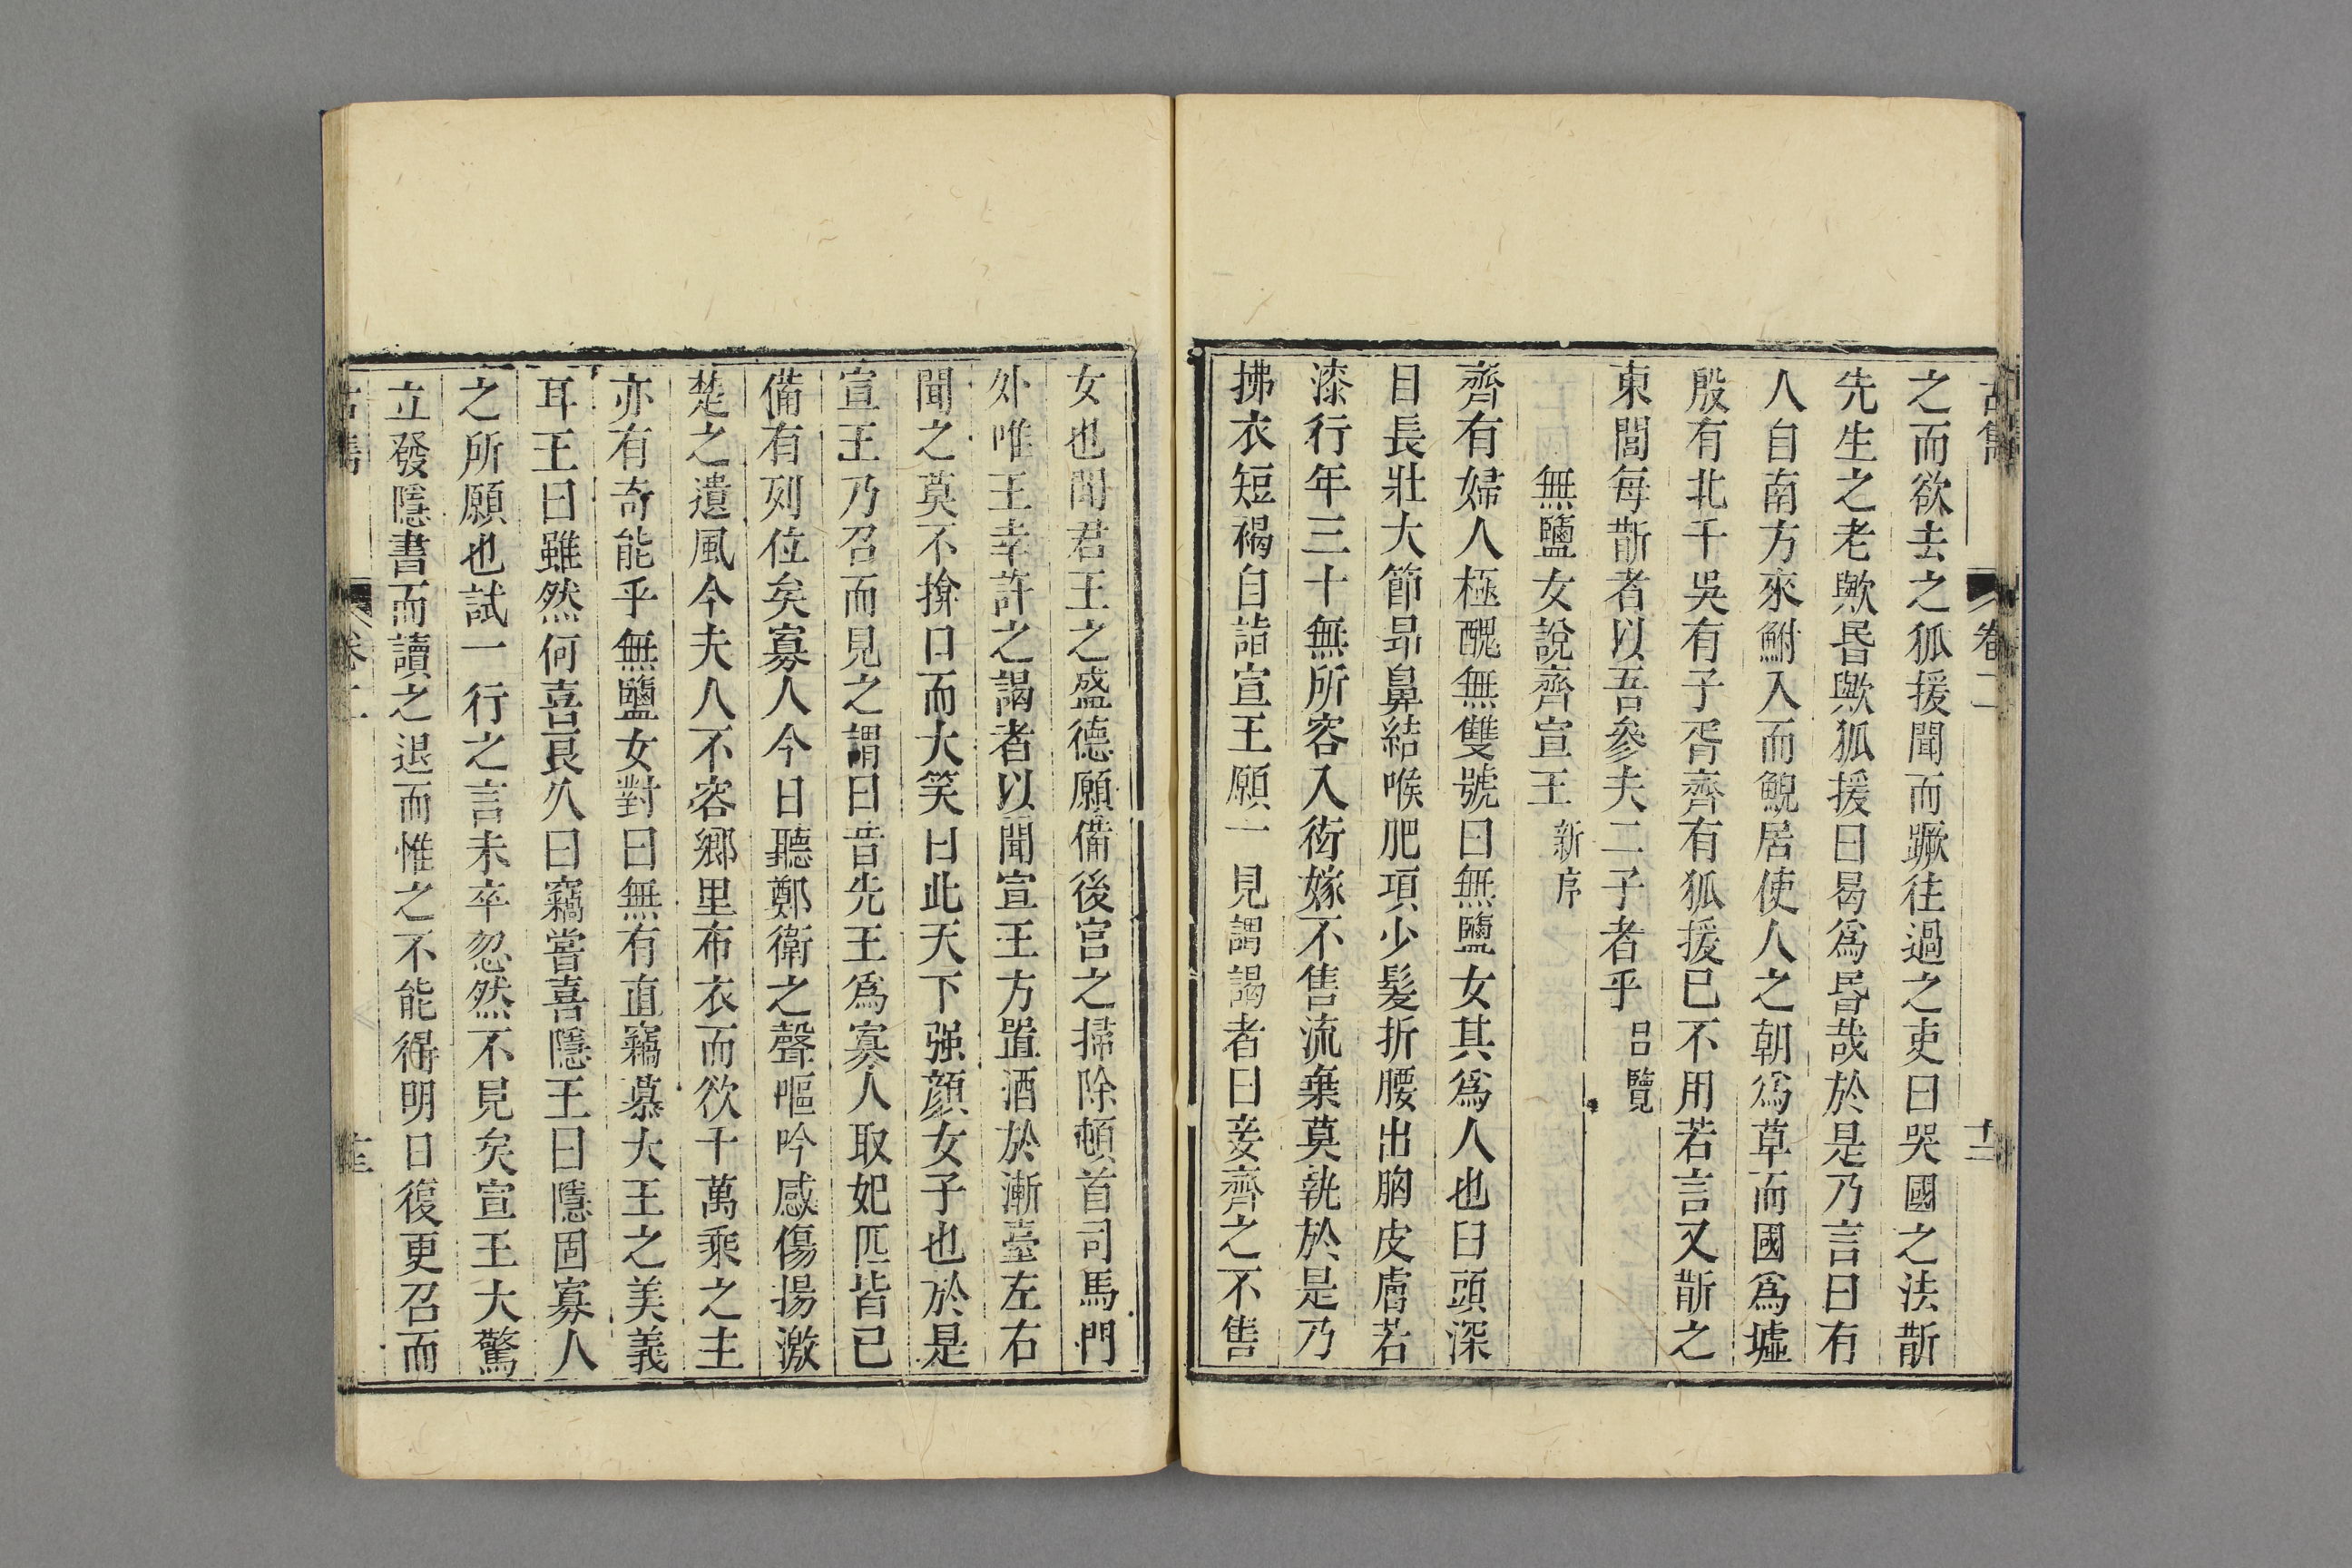 古雋 卷二 十二
之而欲去之狐援聞而蹶往過之吏曰哭國之法斮
先生之老歟昏歟狐援曰曷爲昏哉於是乃言曰有
人自南方來鮒入而鯢居使人之朝爲草而國爲墟
殷有北干吳有子胥齊有狐援已不用若言又斮之
東閭每斮者以吾參夫二子者乎 呂覽
無鹽女說齊宣王 新序
齊有婦人極醜無雙號曰無鹽女其爲人也臼頭深
目長壯大節昂鼻結喉肥項少髮折腰出胸皮膚若
漆行年三十無所容入衒嫁不售流棄莫執於是乃
拂衣短褐自詣宣王願一見謂謁者曰妾齊之不售
女也聞君王之盛德願備後宮之掃除頓首司馬門
外唯王幸許之謁者以聞宣王方置酒於漸臺左右
聞之莫不揜口而大笑曰此天下强顔女子也於是
宣王乃召而見之謂曰昔先王爲寡人取妃匹皆已
備有列位矣寡人今日聽鄭衛之聲嘔吟感傷揚激
楚之遺風今夫人不容鄉里布衣而欲干萬乘之主
亦有奇能乎無鹽女對曰無有直竊慕大王之美義
耳王曰雖然何喜良久曰竊嘗喜隱王曰隱固寡人
之所願也試一行之言未卒忽然不見矣宣王大驚
立發隱書而讀之退而惟之不能得明日復更召而
卷二